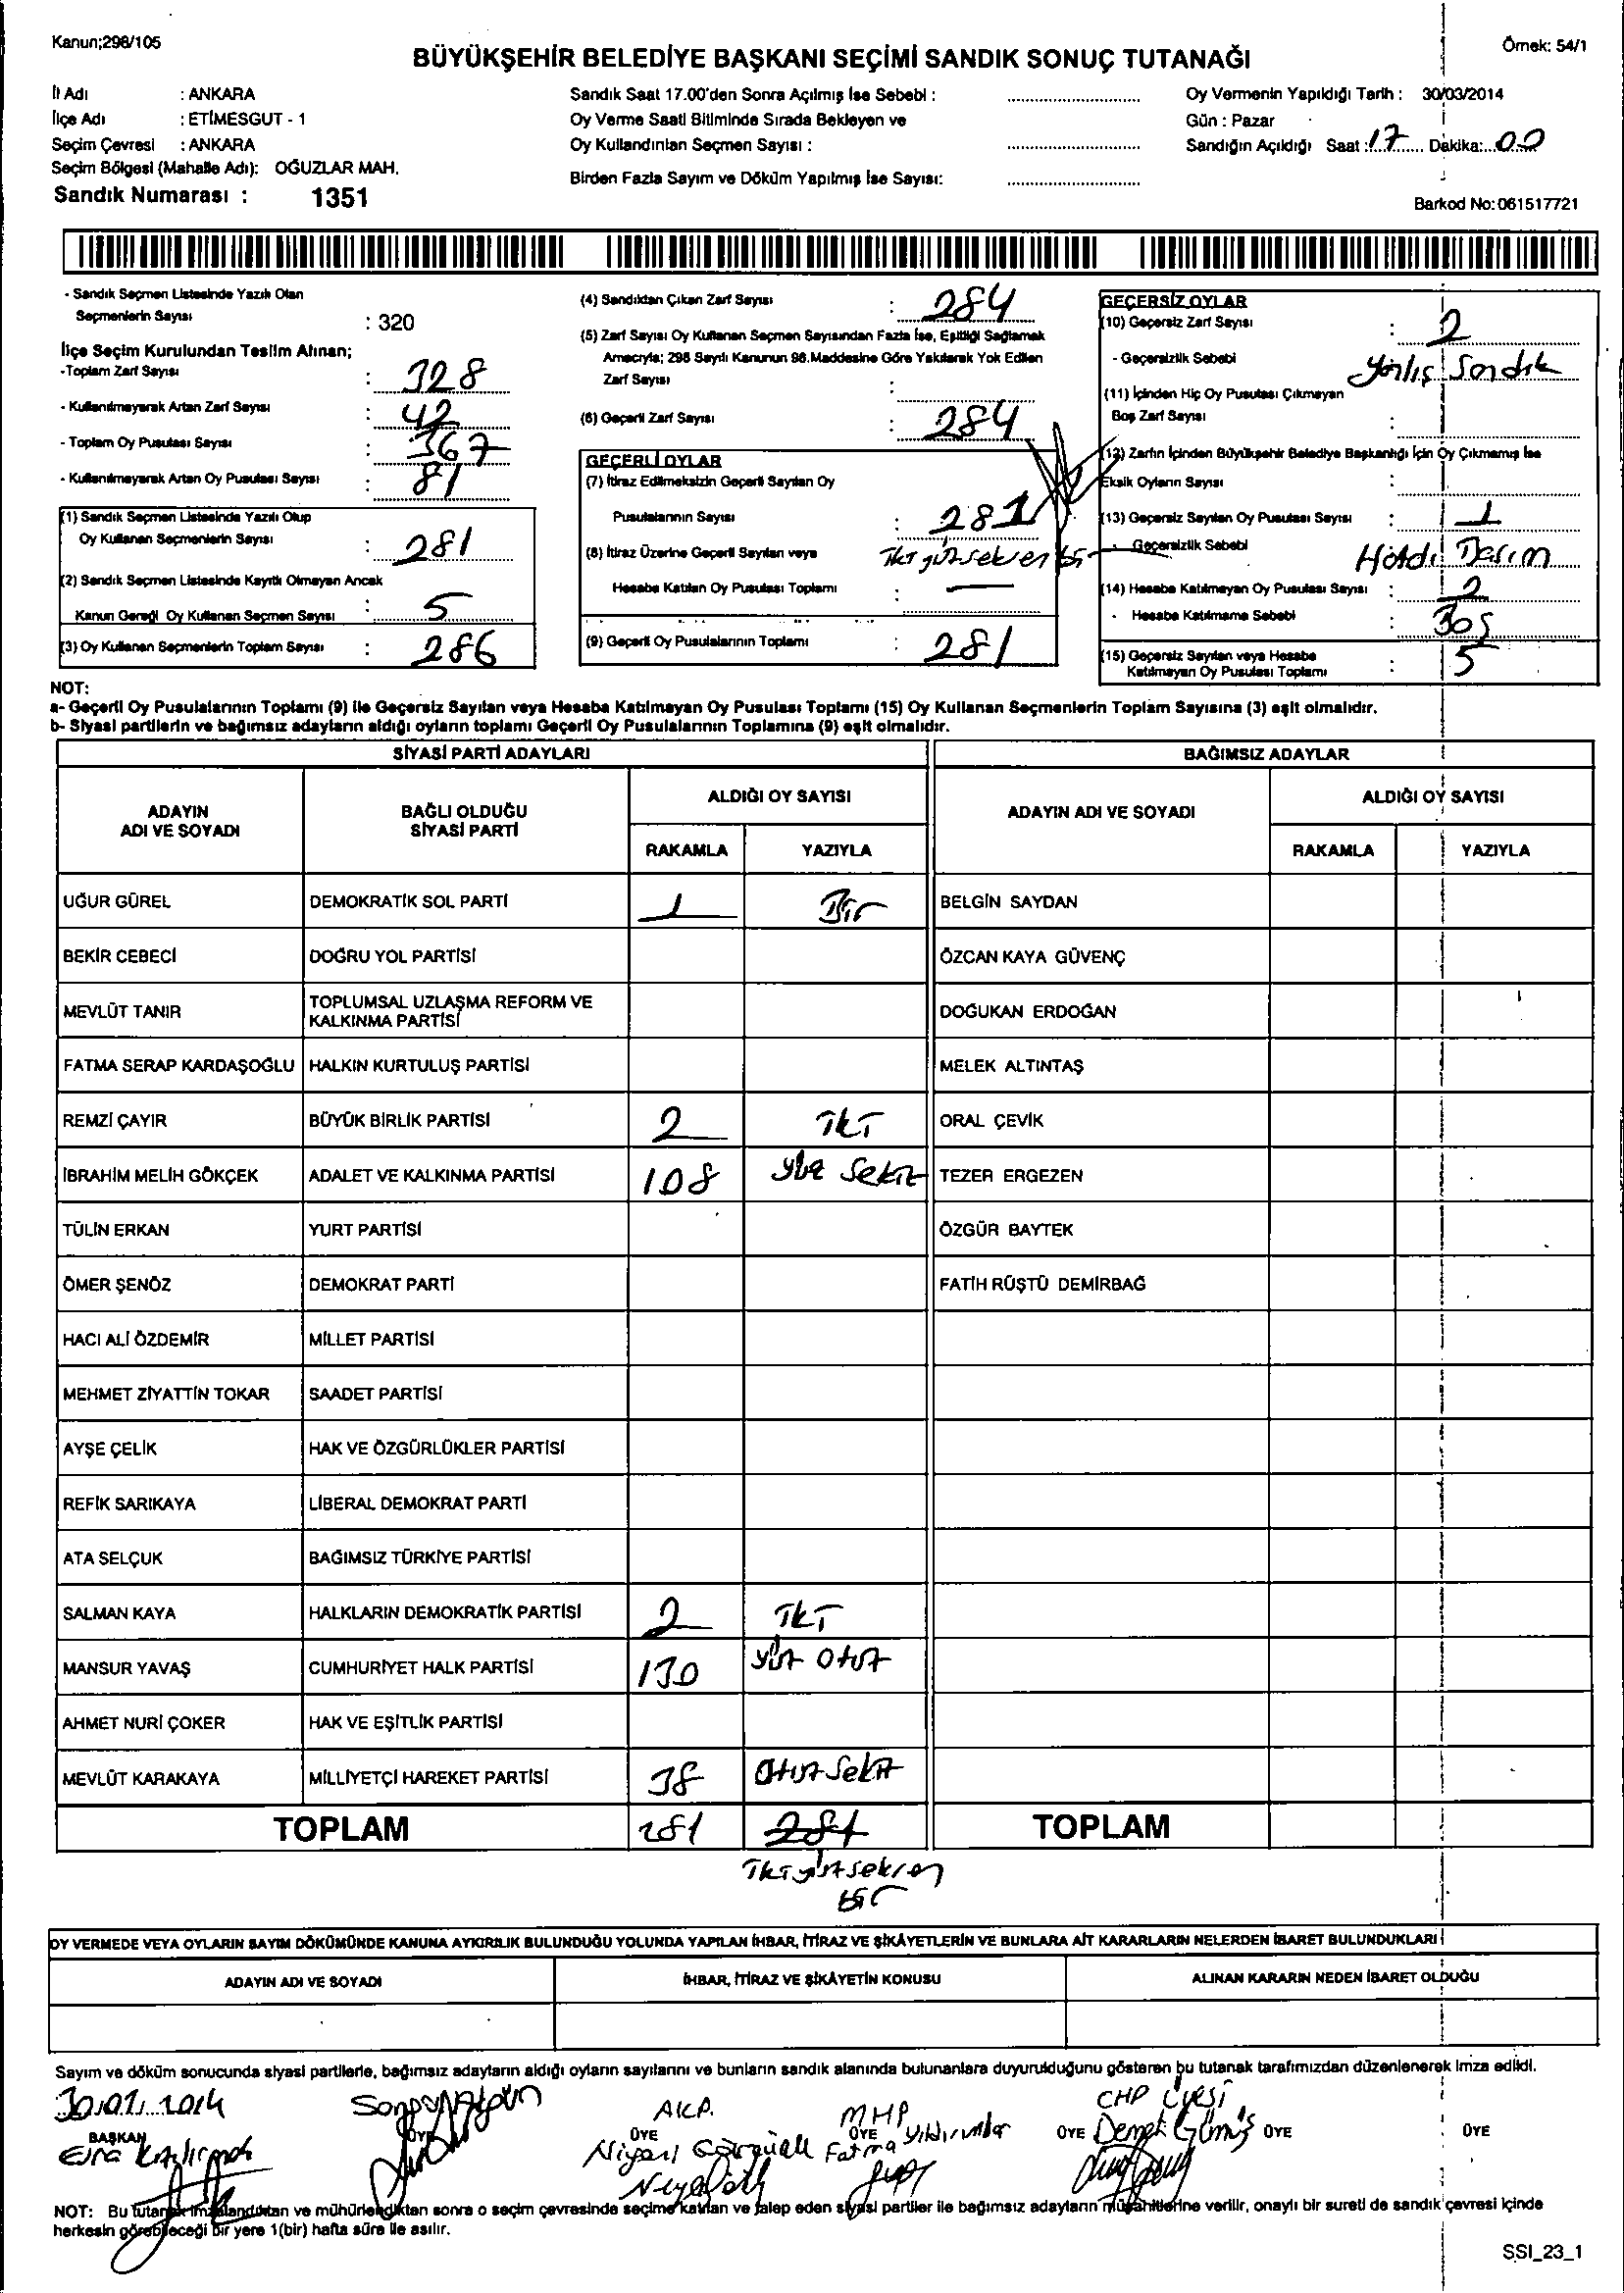 Kanun;298/105
Örnek: 54/1
BÜYÜKŞEHİR BELEDİYE BAŞKANI SEÇİMİ SANDIK SONUÇ TUTANAĞI
İl Adı : ANKARA
İlçe Adı : ETİMESGUT - 1
Seçim Çevresi : ANKARA
Seçim Bölgesi (Mahalle Adı): OĞUZLAR MAH.
Sandık Numarası : 1351
Sandık Saat 17.00'den Sonra Açılmış İse Sebebi :
Oy Verme Saati Bitiminde Sırada Bekleyen ve
Oy Kullandırılan Seçmen Sayısı :
Birden Fazla Sayım ve Döküm Yapılmış İse Sayısı:
Oy Vermenin Yapıldığı Tarih : 30/03/2014
Gün : Pazar
Sandığın Açıldığı Saat : 17 Dakika: 00
Barkod No: 061517721
- Sandık Seçmen Listesinde Yazılı Olan
Seçmenlerin Sayısı : 320
İlçe Seçim Kurulundan Teslim Alınan;
-Toplam Zarf Sayısı : 328
- Kullanılmayarak Artan Zarf Sayısı : 42
- Toplam Oy Pusulası Sayısı : 367
- Kullanılmayarak Artan Oy Pusulası Sayısı : 81
(1) Sandık Seçmen Listesinde Yazılı Olup
Oy Kullanan Seçmenlerin Sayısı : 281
(2) Sandık Seçmen Listesinde Kayıtlı Olmayan Ancak
Kanun Gereği Oy Kullanan Seçmen Sayısı : 5
(3) Oy Kullanan Seçmenlerin Toplam Sayısı : 286
(4) Sandıktan Çıkan Zarf Sayısı : 284
(5) Zarf Sayısı Oy Kullanan Seçmen Sayısından Fazla İse, Eşitliği Sağlamak
Amacıyla; 298 Sayılı Kanunun 98.Maddesine Göre Yakılarak Yok Edilen
Zarf Sayısı :
(6) Geçerli Zarf Sayısı : 284
GEÇERLİ OYLAR
(7) İtiraz Edilmeksizin Geçerli Sayılan Oy
Pusulalarının Sayısı : 281
İki yüz seksen bir
(8) İtiraz Üzerine Geçerli Sayılan veya
Hesaba Katılan Oy Pusulası Toplamı : —
(9) Geçerli Oy Pusulalarının Toplamı : 281
GEÇERSİZ OYLAR
(10) Geçersiz Zarf Sayısı : 2
- Geçersizlik Sebebi Yanlış Sandık
(11) İçinden Hiç Oy Pusulası Çıkmayan
Boş Zarf Sayısı :
(12) Zarfın İçinden Büyükşehir Belediye Başkanlığı İçin Oy Çıkmamış İse
Eksik Oyların Sayısı :
(13) Geçersiz Sayılan Oy Pusulası Sayısı : 1
- Geçersizlik Sebebi
(14) Hesaba Katılmayan Oy Pusulası Sayısı : 2
- Hesaba Katılmama Sebebi : Boş
(15) Geçersiz Sayılan veya Hesaba
Katılmayan Oy Pusulası Toplamı : 5
NOT:
a- Geçerli Oy Pusulalarının Toplamı (9) ile Geçersiz Sayılan veya Hesaba Katılmayan Oy Pusulası Toplamı (15) Oy Kullanan Seçmenlerin Toplam Sayısına (3) eşit olmalıdır.
b- Siyasi partilerin ve bağımsız adayların aldığı oyların toplamı Geçerli Oy Pusulalarının Toplamına (9) eşit olmalıdır.
SİYASİ PARTİ ADAYLARI BAĞIMSIZ ADAYLAR
ADAYIN ADI VE SOYADI BAĞLI OLDUĞU SİYASİ PARTİ ALDIĞI OY SAYISI ADAYIN ADI VE SOYADI ALDIĞI OY SAYISI
RAKAMLA YAZIYLA RAKAMLA YAZIYLA
UĞUR GÜREL DEMOKRATİK SOL PARTİ 1 Bir BELGİN SAYDAN
BEKİR CEBECİ DOĞRU YOL PARTİSİ ÖZCAN KAYA GÜVENÇ
MEVLÜT TANIR TOPLUMSAL UZLAŞMA REFORM VE KALKINMA PARTİSİ DOĞUKAN ERDOĞAN
FATMA SERAP KARDAŞOĞLU HALKIN KURTULUŞ PARTİSİ MELEK ALTINTAŞ
REMZİ ÇAYIR BÜYÜK BİRLİK PARTİSİ 2 İki ORAL ÇEVİK
İBRAHİM MELİH GÖKÇEK ADALET VE KALKINMA PARTİSİ 108 yüz sekiz TEZER ERGEZEN
TÜLİN ERKAN YURT PARTİSİ ÖZGÜR BAYTEK
ÖMER ŞENÖZ DEMOKRAT PARTİ FATİH RÜŞTÜ DEMİRBAĞ
HACI ALİ ÖZDEMİR MİLLET PARTİSİ
MEHMET ZİYATTİN TOKAR SAADET PARTİSİ
AYŞE ÇELİK HAK VE ÖZGÜRLÜKLER PARTİSİ
REFİK SARIKAYA LİBERAL DEMOKRAT PARTİ
ATA SELÇUK BAĞIMSIZ TÜRKİYE PARTİSİ
SALMAN KAYA HALKLARIN DEMOKRATİK PARTİSİ 2 İki
MANSUR YAVAŞ CUMHURİYET HALK PARTİSİ 130 yüz otuz
AHMET NURİ ÇOKER HAK VE EŞİTLİK PARTİSİ
MEVLÜT KARAKAYA MİLLİYETÇİ HAREKET PARTİSİ 38 Otuz Sekiz
TOPLAM 281 281 TOPLAM
İki yüz seksen
bir
OY VERMEDE VEYA OYLARIN SAYIM DÖKÜMÜNDE KANUNA AYKIRILIK BULUNDUĞU YOLUNDA YAPILAN İHBAR, İTİRAZ VE ŞİKÂYETLERİN VE BUNLARA AİT KARARLARIN NELERDEN İBARET BULUNDUKLARI
ADAYIN ADI VE SOYADI İHBAR, İTİRAZ VE ŞİKÂYETİN KONUSU ALINAN KARARIN NEDEN İBARET OLDUĞU
Sayım ve döküm sonucunda siyasi partilerle, bağımsız adayların aldığı oyların sayılarını ve bunların sandık alanında bulunanlara duyurulduğunu gösteren bu tutanak tarafımızdan düzenlenerek imza edildi.
AKP. MHP CHP Üyesi
BAŞKAN ÜYE ÜYE ÜYE ÜYE ÜYE ÜYE
Esra Fatma Yıldırımlar
NOT: Bu tutanak imzalandıktan ve mühürlendikten sonra o seçim çevresinde seçime katılan ve talep eden siyasi partiler ile bağımsız adayların müşahitlerine verilir, onaylı bir sureti de sandık çevresi içinde
herkesin görebileceği bir yere 1(bir) hafta süre ile asılır.
SSI_23_1